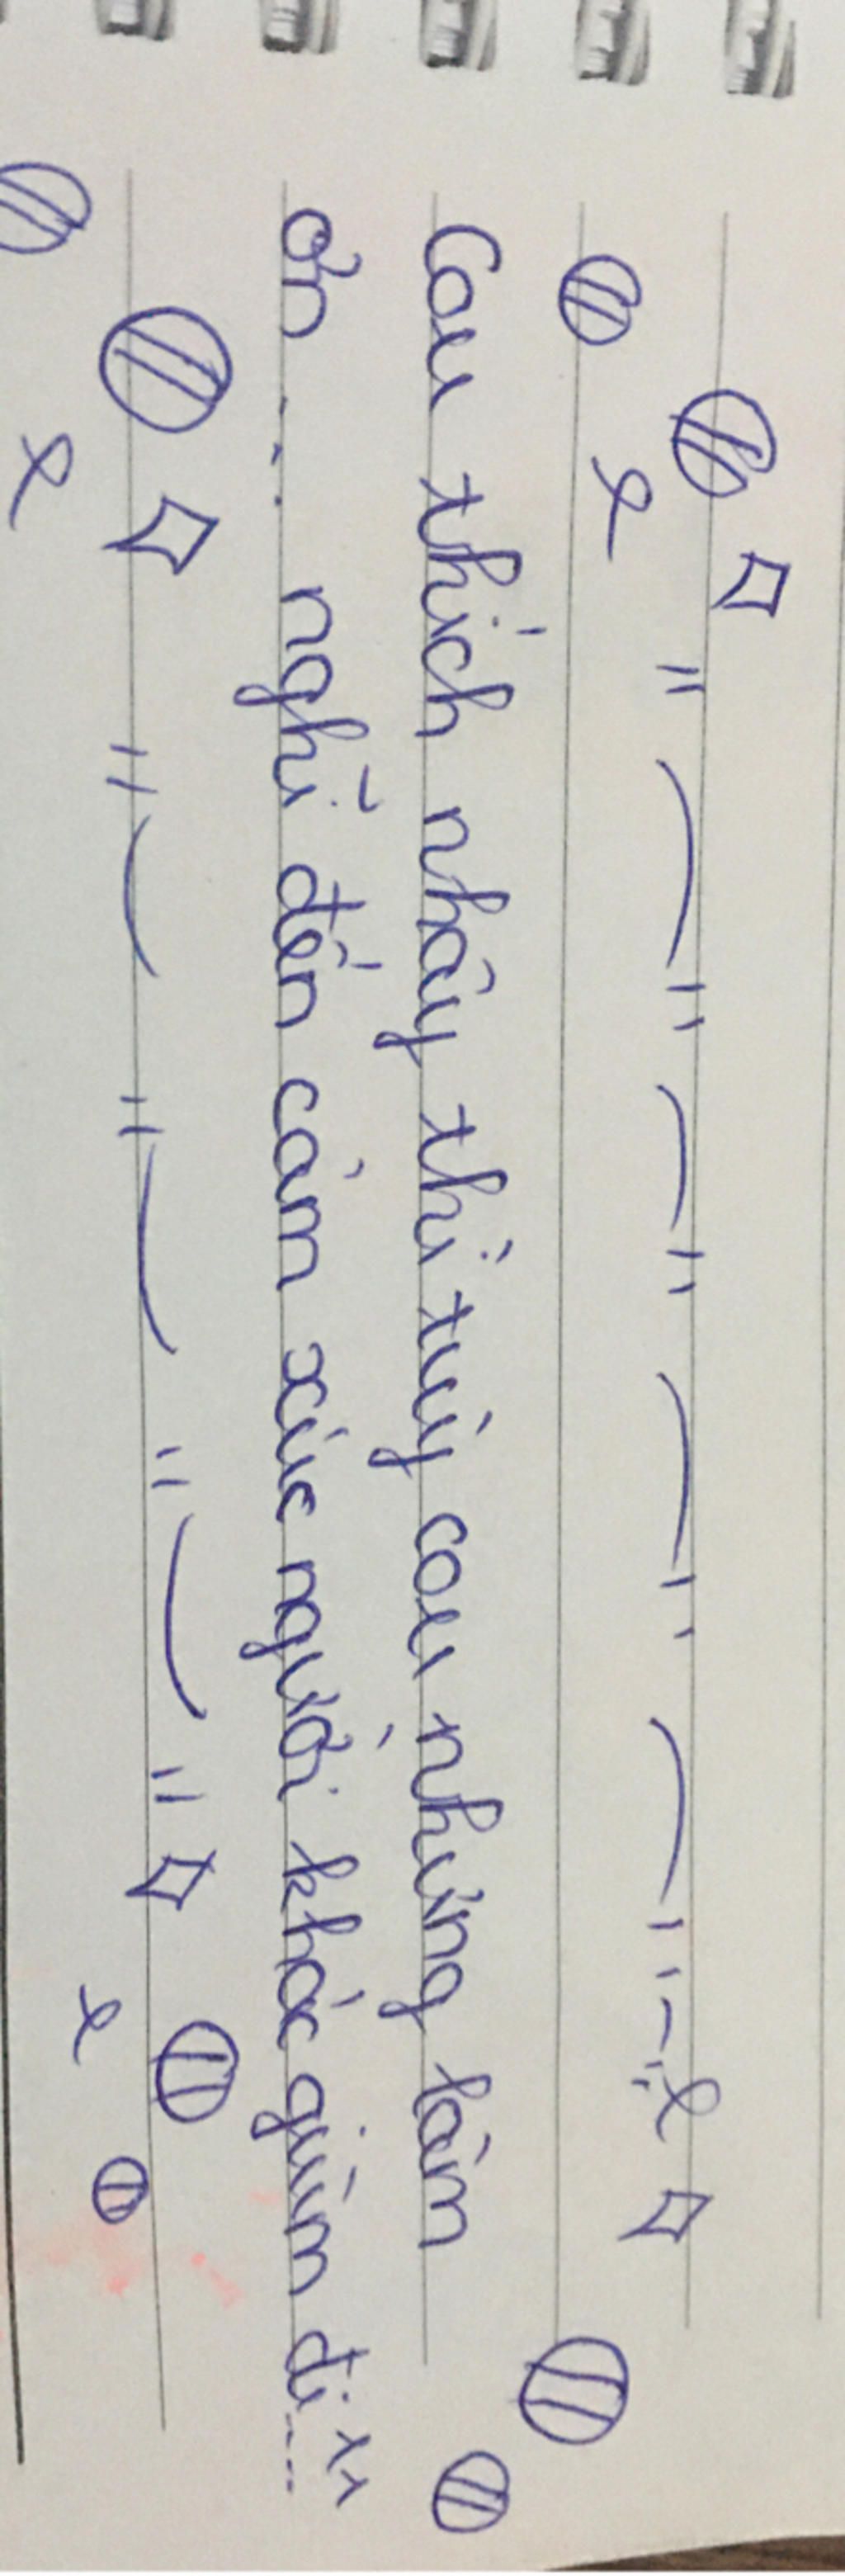 Cou thích nhây thì tuỳ cou nhưng làm
ơn ... nghĩ đến cảm xúc người khác giùm đi...